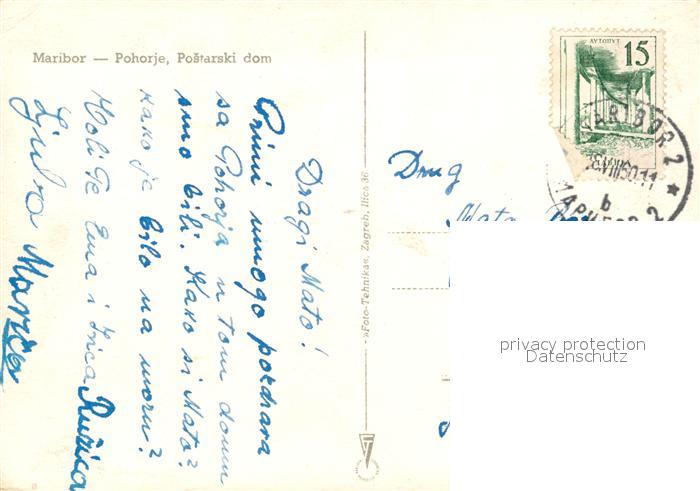 Maribor — Pohorje, Poštarski dom
Dragi Mato!
Primi mnogo pozdrava
sa Pohorja u tom domu
smo bili. Kako si Mato?
kako je bilo na moru?
Ružica
Ljuba Marica
»Foto-Tehnika«, Zagreb, Ilica 36
15
MARIBOR 2
b
Drug
Mato
privacy protection
Datenschutz